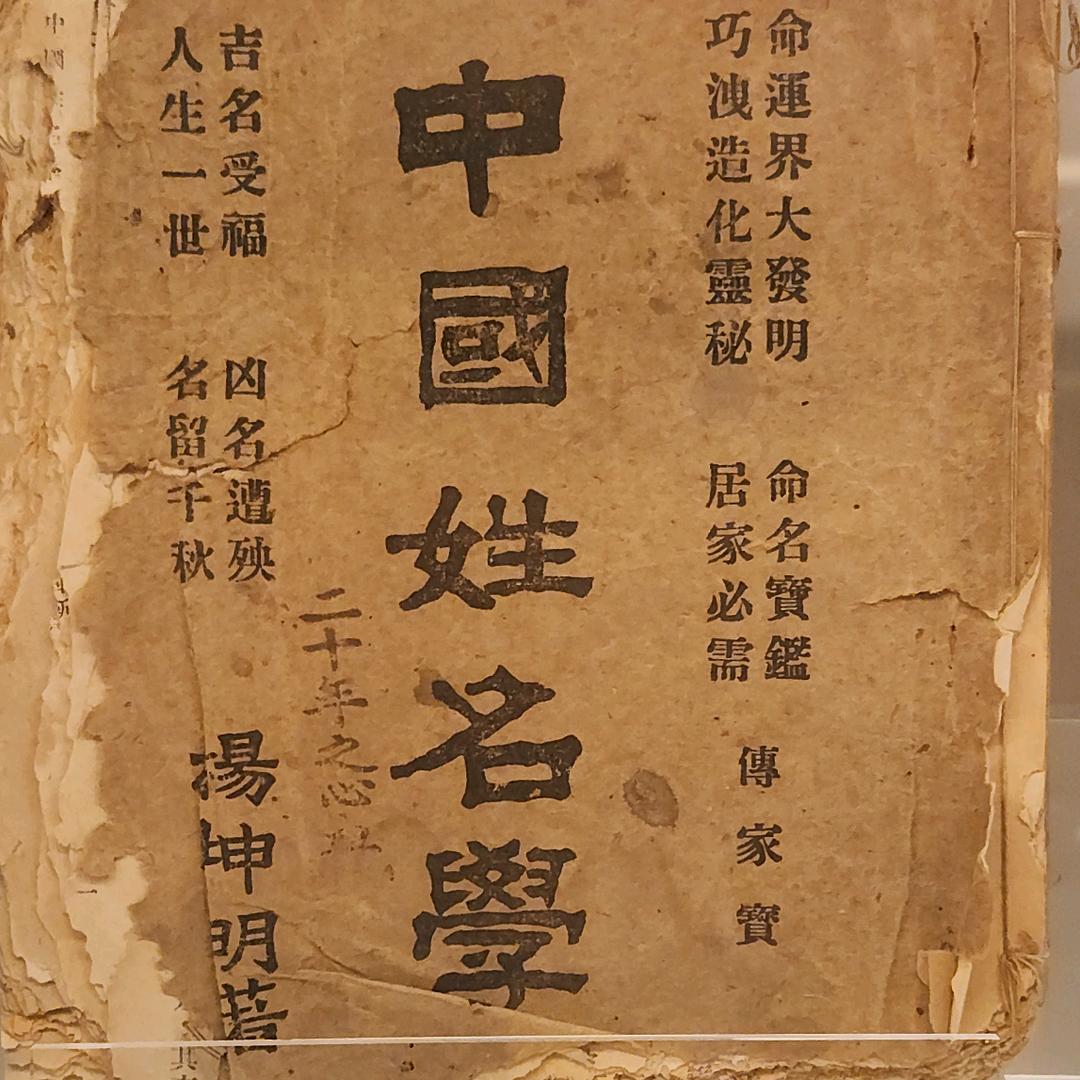 命運界大發明 命名寶鑑
巧洩造化靈秘 居家必需
傳家寶
中國姓名學
二十年之心血
吉名受福 凶名遭殃
人生一世 名留千秋
楊坤明著
中國